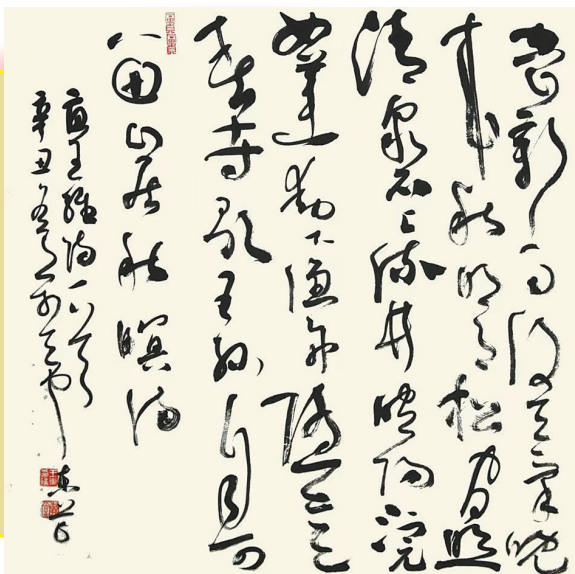 空山新雨後天氣晚
来秋明月松间照
清泉石上流竹喧歸浣
女蓮動下漁舟随意
春芳歇王孙自可
留山居秋暝诗
王維诗一首
辛丑